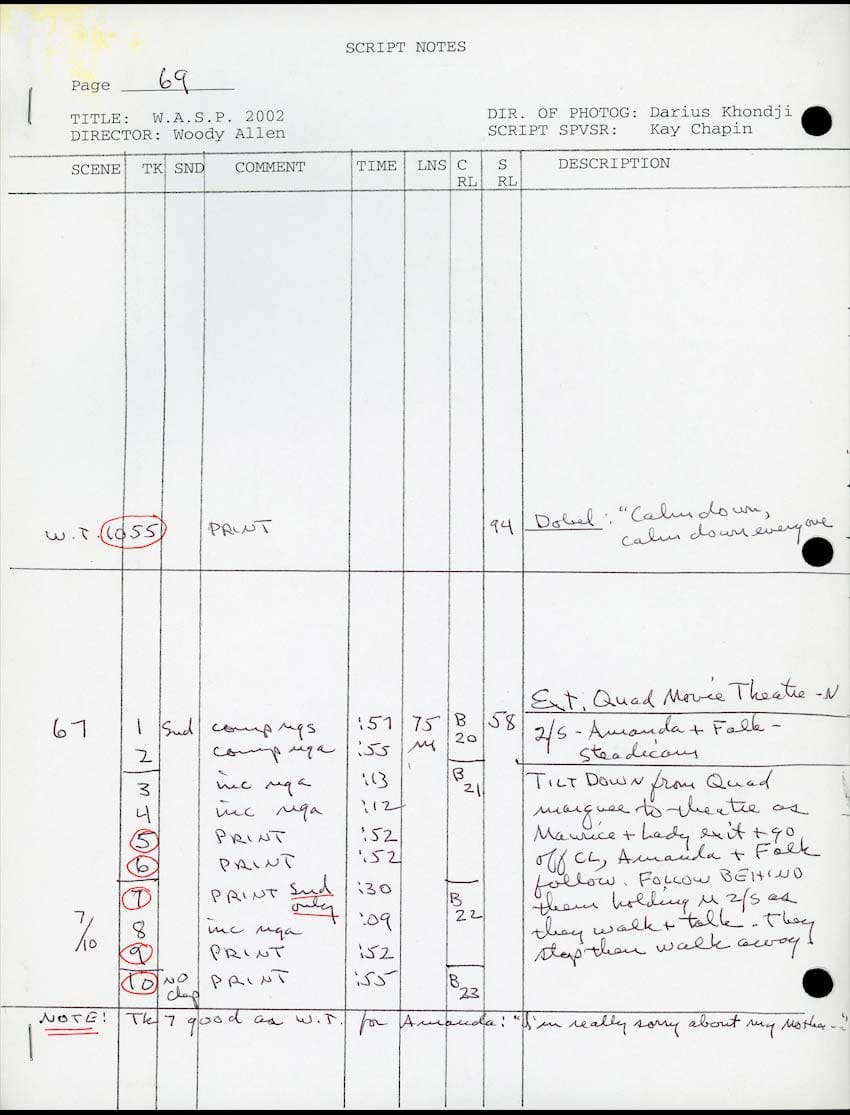 SCRIPT NOTES
Page 69
TITLE: W.A.S.P. 2002
DIR. OF PHOTOG: Darius Khondji
DIRECTOR: Woody Allen
SCRIPT SPVSR: Kay Chapin
SCENE TK SND COMMENT TIME LNS C RL S RL DESCRIPTION
W.T. 1055 PRINT 94 Dobel: "Calm down,
calm down everyone
Ext. Quad Movie Theatre - N
67 1 Snd comp ngs :57 75 B 58 2/S - Amanda + Falk -
2 comp nga :55 M 20 Steadicam
3 inc nga :13 B 21 TILT DOWN from Quad
4 inc nga :12 marquee to theatre as
5 PRINT :52 Maurice + Lady exit + go
6 PRINT :52 off CL, Amanda + Falk
follow. FOLLOW BEHIND
7 PRINT Snd only :30 B 22 them holding M 2/S as
7/10 8 inc nga :09 they walk + talk. They
9 PRINT :52 stop then walk away.
10 NO clap PRINT :55 B 23
NOTE! Tk 7 good as W.T. for Amanda: "I'm really sorry about my Mother --"